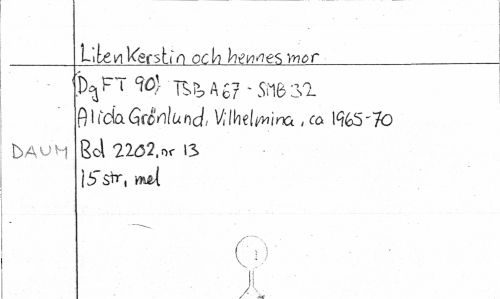 Liten Kerstin och hennes mor
(DgFT 90) TSB A 67 - SMB 32
Alida Grönlund, Vilhelmina, ca 1965-70
DAUM Bd 2202, nr 13
15 str, mel